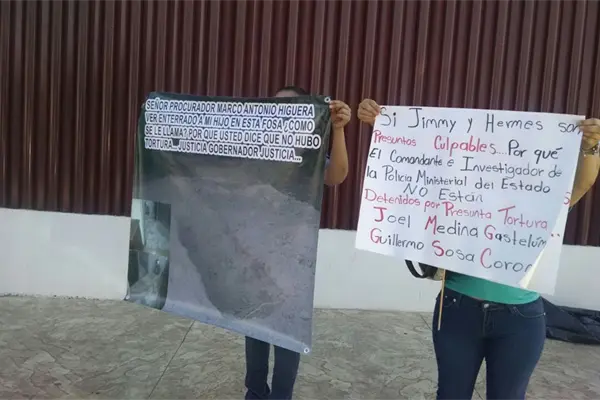 SEÑOR PROCURADOR MARCO ANTONIO HIGUERA
VER ENTERRADO A MI HIJO EN ESTA FOSA ¿COMO
SE LE LLAMA? POR QUE USTED DICE QUE NO HUBO
TORTURA...JUSTICIA GOBERNADOR JUSTICIA...
Si Jimmy y Hermes son
Presuntos Culpables... Por qué
El Comandante e Investigador de
la Policía Ministerial del Estado
NO Están
Detenidos por Presunta Tortura..
Joel Medina Gastelúm
Guillermo Sosa